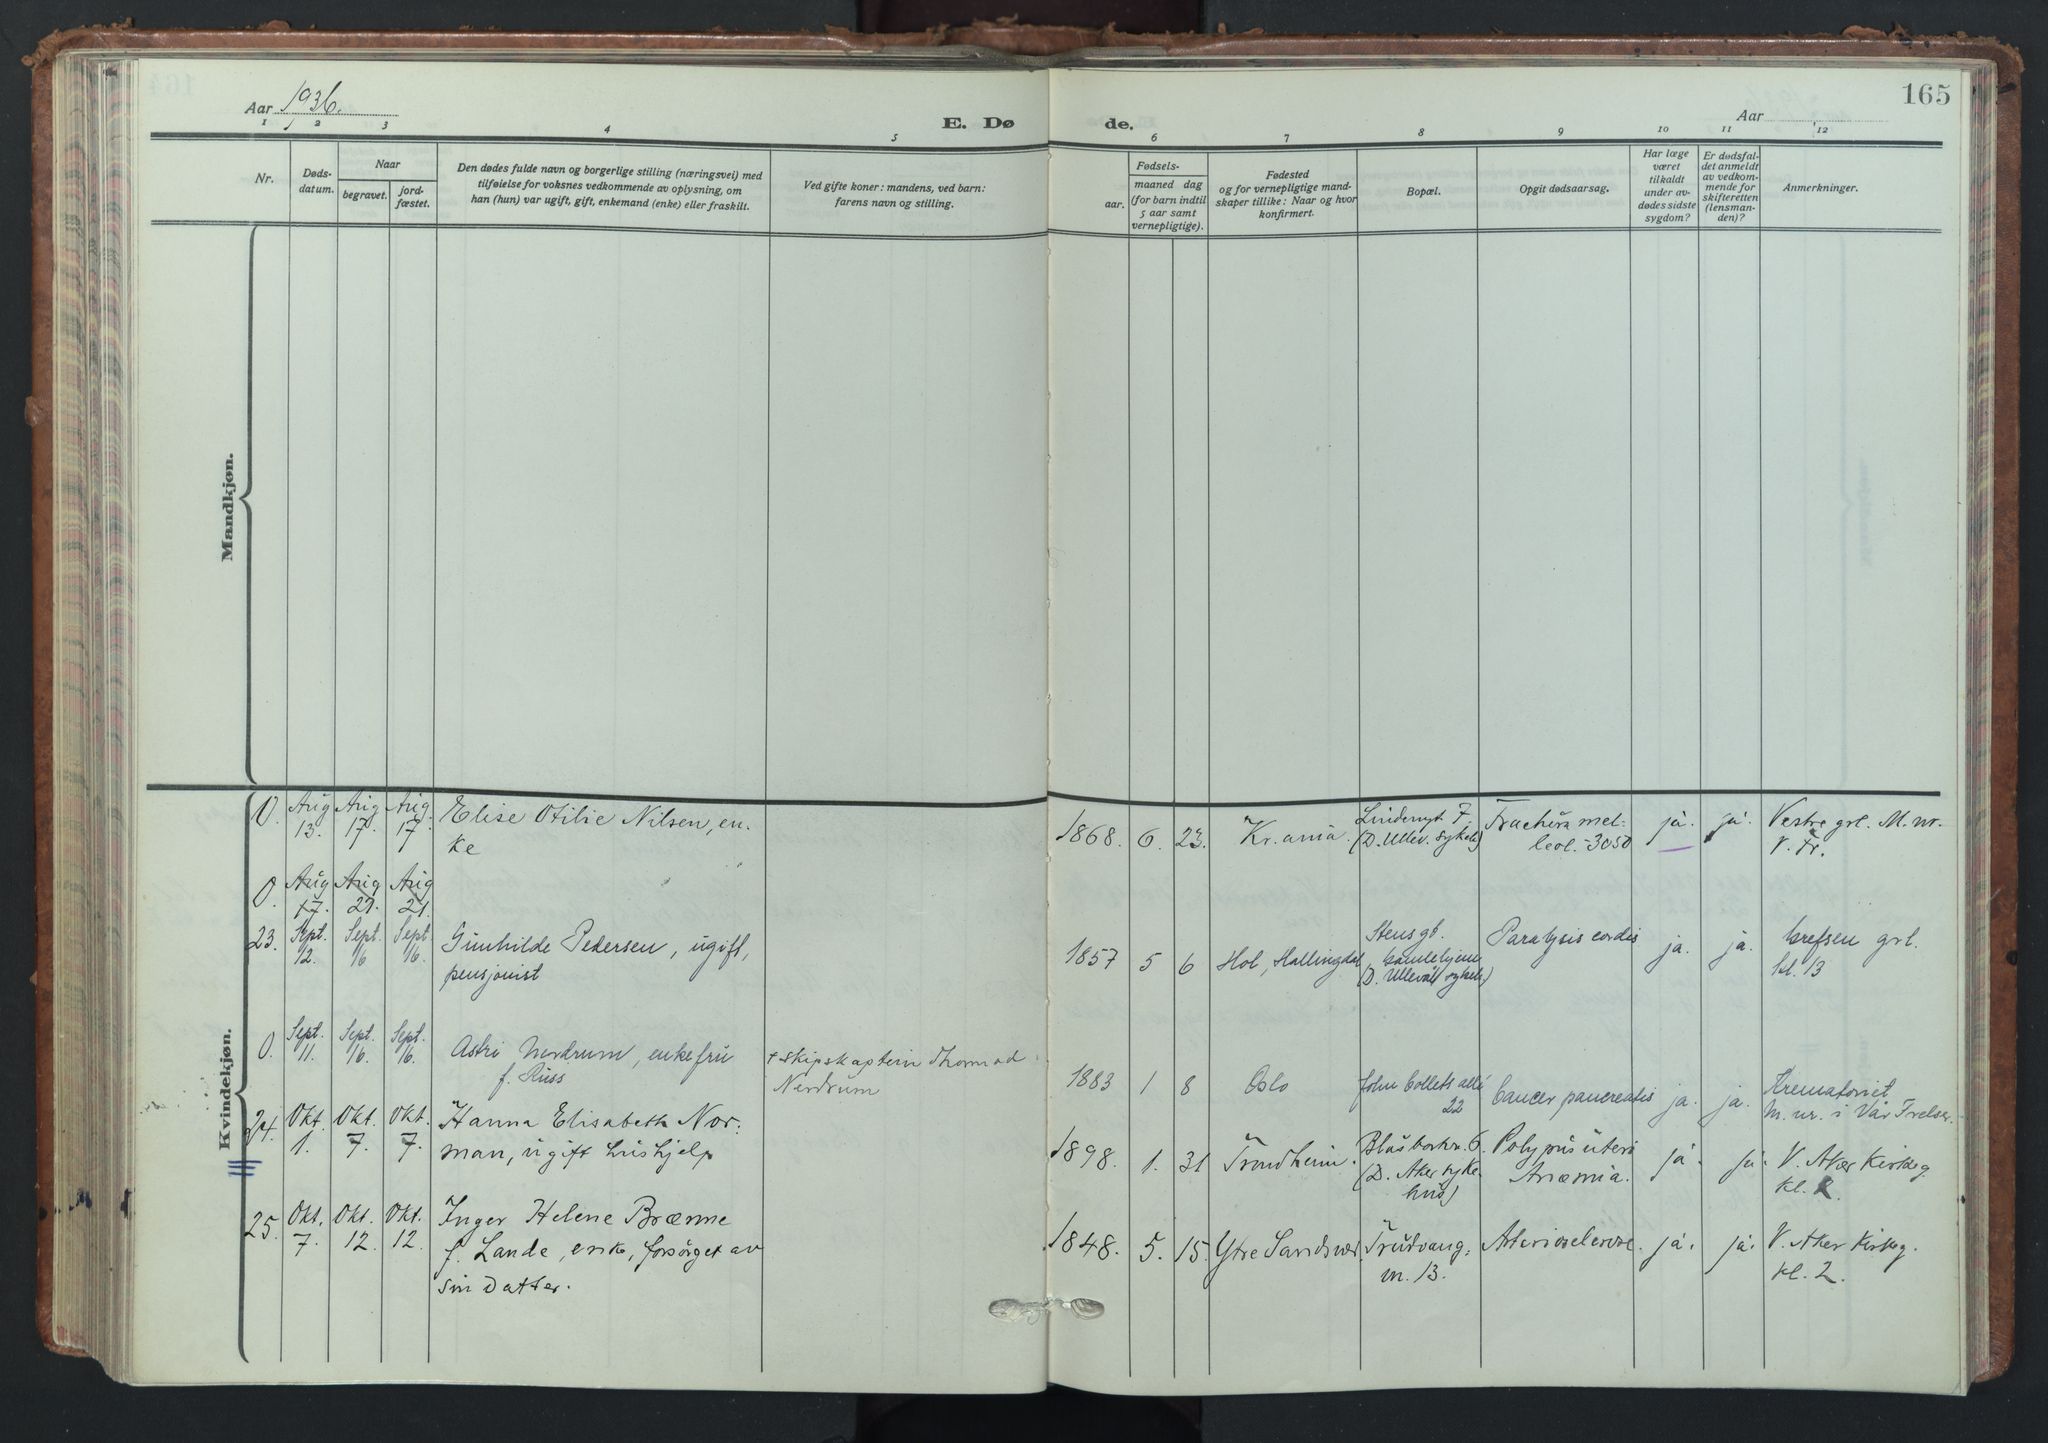 165
Aar 1936.
Aar
E. Dø
de.
1 2 3 4 5 6 7 8 9 10 11 12
Nr.
Døds-
datum.
Naar
begravet.
jord-
fæstet.
Den dødes fulde navn og borgerlige stilling (næringsvei) med
tilføielse for voksnes vedkommende av oplysning, om
han (hun) var ugift, gift, enkemand (enke) eller fraskilt.
Ved gifte koner: mandens, ved barn:
farens navn og stilling.
Fødsels-
aar.
maaned dag
(for barn indtil
5 aar samt
vernepligtige).
Fødested
og for vernepligtige mand-
skaper tillike: Naar og hvor
konfirmert.
Bopæl.
Opgit dødsaarsag.
Har læge
været
tilkaldt
under av-
dødes sidste
sygdom?
Er dødsfal-
det anmeldt
av vedkom-
mende for
skifteretten
(lensman-
den)?
Anmerkninger.
Mandkjøn.
Kvindekjøn.
0. Aug 13. Aug 17. Aug. 17. Elise Otilie Nilsen, en-
ke
1868. 6. 23. Kr.ania. ja. ja.
(D. Ullev. sykeh)
Vestre grl. M. nr.
V. Fr.
0. Aug 17. Aug 21. Aug 21.
23. Sept. 12. Sept. 16 Sept 16. Gunhilde Pedersen, ugift,
pensjonist
1857 5 6 Hol, Hallingdal
Stensgt.
Gamlehjem
(D. Ullevål sykeh.)
Paralysis cordis ja. ja. Grefsen grl.
kl. 13
0. Sept. 11. Sept. 16. Sept. 16. Astri Nerdrum, enkefru
f. Russ
+ skipskaptein Thormod
Nerdrum
1883 1 8 Oslo John Collets allé
22
Cancer pancreatis ja. ja. Krematoriet
M. nr. i Vår Frelser.
24. Okt. 1. Okt. 7. Okt. 7. Hanna Elisabeth Nor-
man, ugift hushjelp
1898. 1. 31 Trondheim.
(D. Aker syke-
hus)
Polypus uteri
Anæmia. ja. ja. V. Aker Kirkeg.
kl. 2.
25. Okt. 7. Okt. 12. Okt. 12. Inger Helene Brænne
f. Lande, enke, forsørget av
sin datter.
1848. 5. 15. Ytre Sandsvær. Trudvang.
m. 13.
Arteriosclerose. ja. ja. V. Aker Kirkeg.
kl. 2.